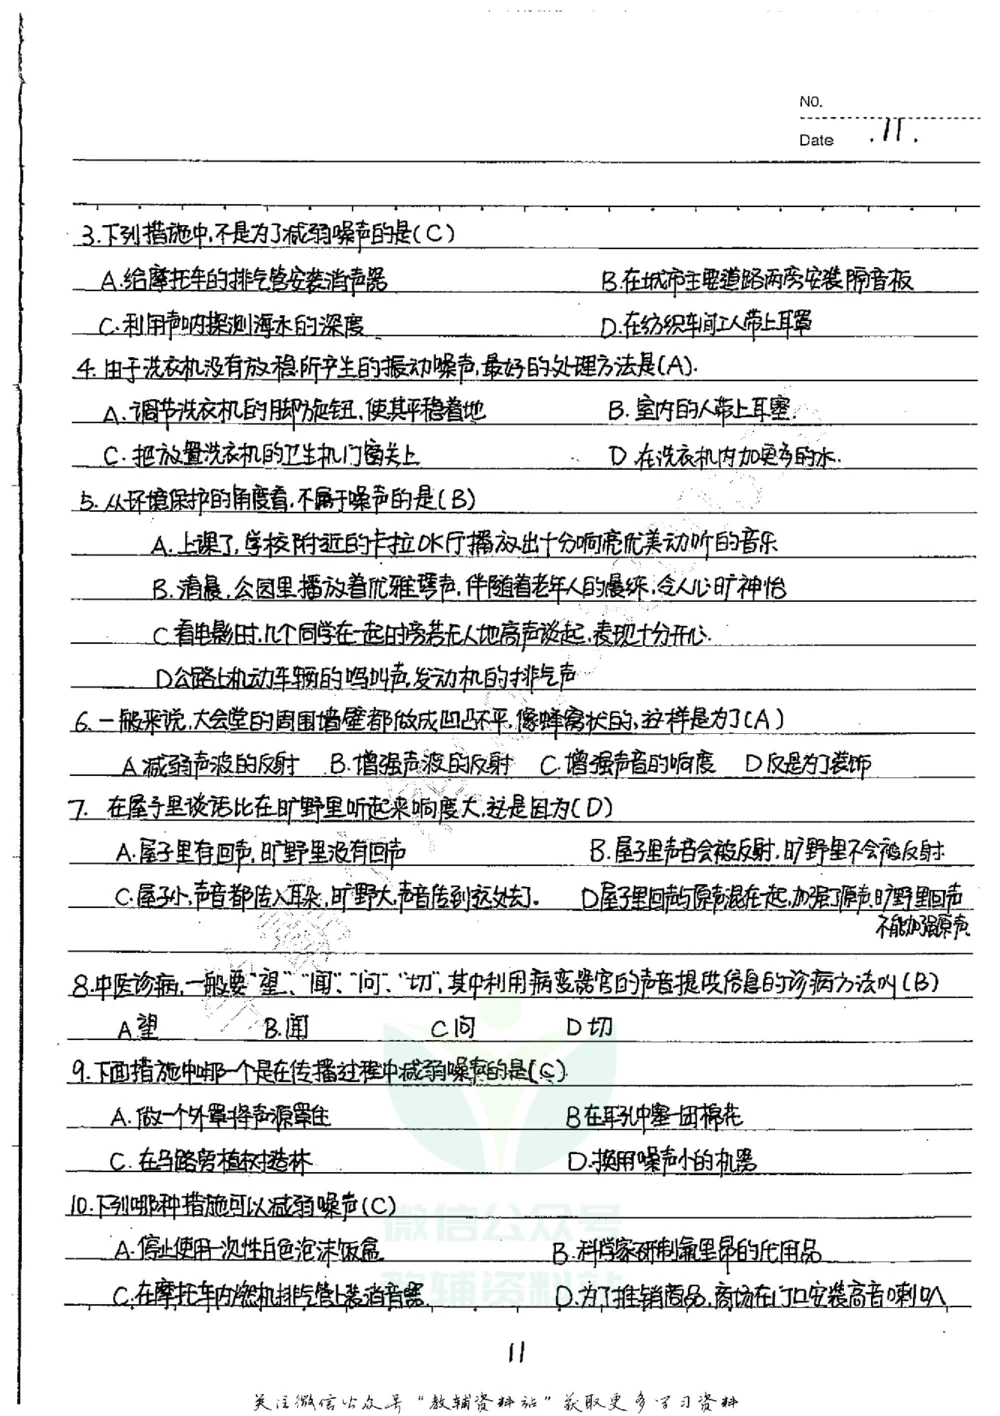 NO.
Date .11.
3.下列措施中,不是为了减弱噪声的是(C)
A.给摩托车的排气管安装消声器 B.在城市主要道路两旁安装隔音板
C.利用声呐探测海水的深度 D.在纺织车间工人带上耳罩
4.由于洗衣机没有放稳所产生的振动噪声,最好的处理方法是(A).
A.调节洗衣机的脚旋钮,使其平稳着地 B.室内的人带上耳塞.
C.把放置洗衣机的卫生机门窗关上 D.在洗衣机内加更多的水.
5.从环境保护的角度看,不属于噪声的是(B)
A.上课了,学校附近的卡拉OK厅播放出十分响亮优美动听的音乐
B.清晨,公园里播放着优雅琴声,伴随着老年人的晨练,令人心旷神怡
C看电影时,几个同学在一起时旁若无人地高声谈起,表现十分开心.
D公路上机动车辆的鸣叫声,发动机的排气声
6.一般来说,大会堂的周围墙壁都做成凹凸不平,像蜂窝状的,这样是为了(A)
A减弱声波的反射 B.增强声波的反射 C.增强声音的响度 D仅是为了装饰
7.在屋子里谈话比在旷野里听起来响度大,这是因为(D)
A.屋子里有回声,旷野里没有回声 B.屋子里声音会被反射,旷野里不会被反射.
C.屋子小,声音都传入耳朵,旷野大,声音传到远处去了. D屋子里回声与原声混在一起,加强了原声,旷野里回声
不能加强原声
8.中医诊病,一般要“望”、“闻”、“问”、“切”,其中利用病变器官的声音提取信息的诊病方法叫(B)
A望 B.闻 C问 D切
9.下面措施中哪一个是在传播过程中减弱噪声的是(C)
A.做一个外罩将声源罩住 B在耳孔中塞一团棉花
C.在马路旁植树造林 D.换用噪声小的机器
10.下列哪种措施可以减弱噪声(C)
A.停止使用一次性白色泡沫饭盒 B.科学家研制氟里昂的代用品
C.在摩托车内燃机排气管上装消音器 D.为了推销商品,商场在门口安装高音喇叭
微信公众号
教辅资料站
11
关注微信公众号“教辅资料站”获取更多学习资料